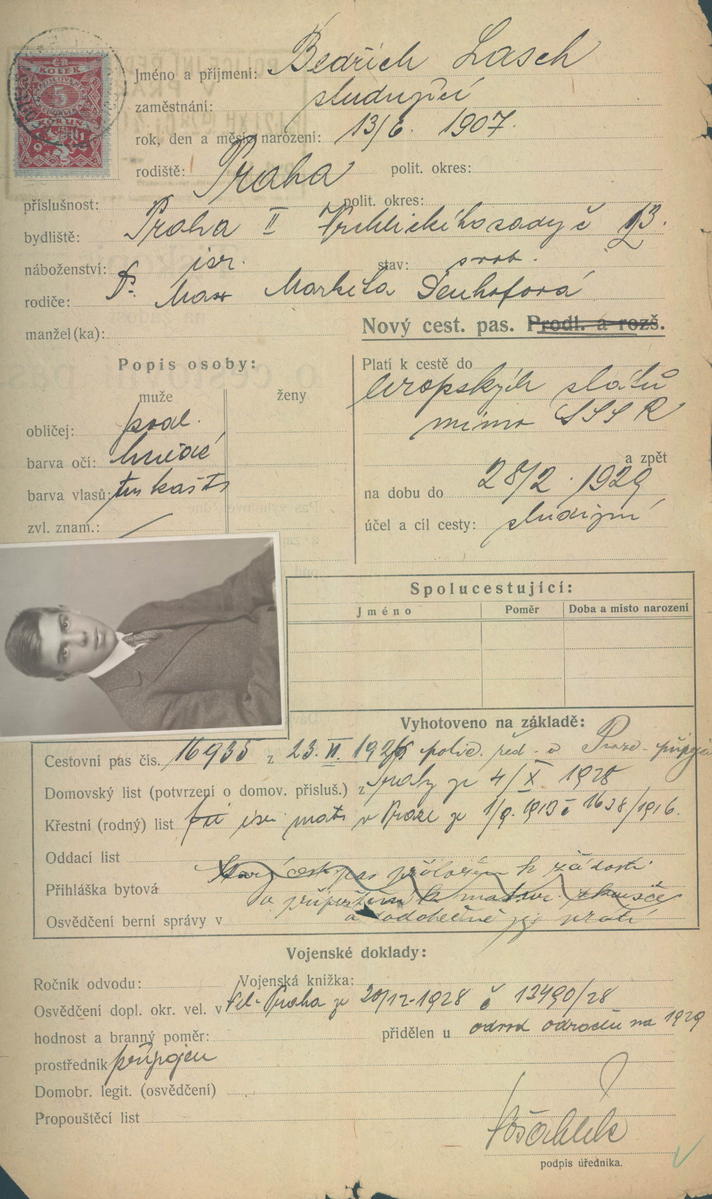 KOLEK
5
Jméno a příjmení: Bedřich Lasch
zaměstnání: studující
rok, den a měsíc narození: 13/6. 1907.
rodiště: Praha polit. okres:
příslušnost: polit. okres:
bydliště: Praha II Vrchlického sady č 13.
náboženství: isr. stav: svob.
rodiče: Max Markéta
manžel(ka):
Nový cest. pas. Prodl. a rozš.
Popis osoby:
muže ženy
obličej: podl.
barva očí: hnědé
barva vlasů: tm kašt
zvl. znam.: /
Platí k cestě do
evropských států
mimo SSSR
a zpět
na dobu do 28/2. 1929
účel a cíl cesty: studijní
Spolucestující:
Jméno Poměr Doba a místo narození
Vyhotoveno na základě:
Cestovní pas čís. 16935 z 23. 1926 polic. řed. v Praze - připojen
Domovský list (potvrzení o domov. přísluš.) z Prahy ze 4/X. 1928
Křestní (rodný) list isr. mat. v Praze ze 1638/1916.
Oddací list
Starý cest. pas přiložen k žádosti
Přihláška bytová
Osvědčení berní správy v
Vojenské doklady:
Ročník odvodu: Vojenská knížka:
Osvědčení dopl. okr. vel. v Praha ze 20/12-1928 č 13490/28
hodnost a branný poměr: přidělen u odvod odročen na 1929
prostředník připojen
Domobr. legit. (osvědčení)
Propouštěcí list
podpis úředníka.